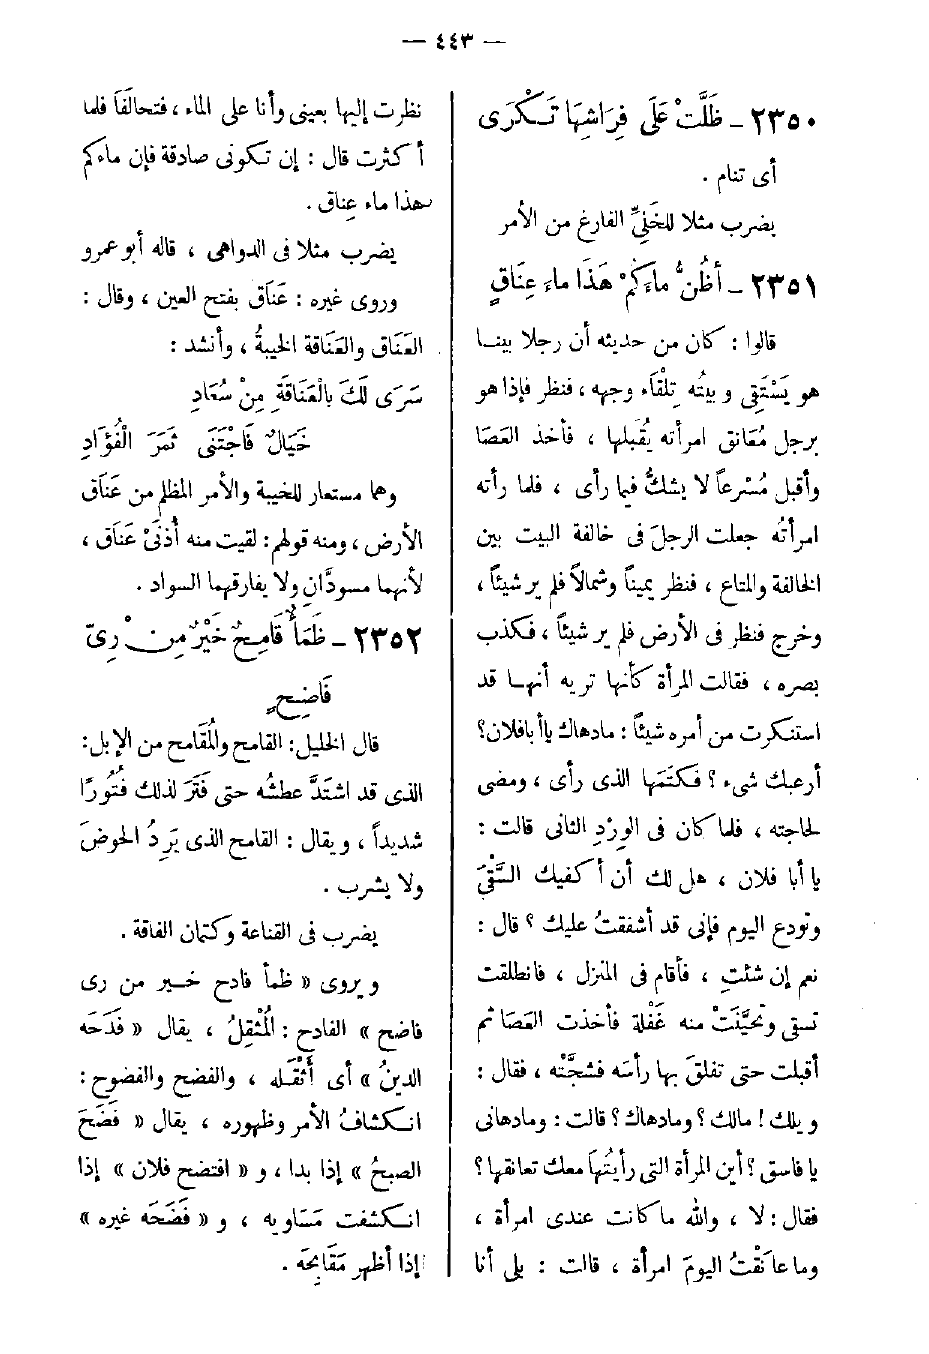 — ٤٤٣ —
٢٣٥٠ ـ ظَلَّتْ عَلَى فِرَاشِهَا تَكْرَى
أى تنام .
يضرب مثلا للخَلِيِّ الفارغ من الأمر
٢٣٥١ ـ أظُنُّ ماءَكُمْ هَذَا ماء عِنَاقٍ
قالوا : كان من حديثه أن رجلا بينا
هو يَسْتَقِى وبيتُه تِلْقَاء وجهه ، فنظر فإذا هو
برجل مُعَانق امرأته يُقَبلها ، فأخذ العَصَا
وأقبل مُسْرعاً لا يشكُّ فيما رأى ، فلما رأته
امرأتُه جعلت الرجلَ فى خالفة البيت بين
الخالفة والمتاع ، فنظر يميناً وشمالاً فلم ير شيئاً ،
وخرج فنظر فى الأرض فلم ير شيئاً ، فكذب
بصره ، فقالت المرأة كأنها تريه أنها قد
استنكرت من أمره شيئاً : مادهاك ياأبا فلان؟
أرعبك شىء ؟ فكَتَمَها الذى رأى ، ومضى
لحاجته ، فلما كان فى الوِرْدِ الثانى قالت :
يا أبا فلان ، هل لك أن أكفيك السَّقْىَ
وتودع اليوم فإنى قد أشفقتُ عليك ؟ قال :
نعم إن شئتِ ، فأقام فى المنزل ، فانطلقت
تسقى وتحيَّنَتْ منه غَفْلة فأخذت العصَا ثم
أقبلت حتى تفلقَ بها رأسَه فشجَّتْه ، فقال :
ويلك ! مالك ؟ ومادهاك ؟ قالت : ومادهانى
يا فاسق ؟ أين المرأة التى رأيتُها معك تعانقها ؟
فقال : لا ، والله ما كانت عندى امرأة ،
وما عانَقْتُ اليومَ امرأة ، قالت : بلى أنا
نظرت إليها بعينى وأنا على الماء ، فتحالَفَا فلما
أكثرت قال : إن تكونى صادقة فإن ماءكم
هذا ماء عِناق .
يضرب مثلا فى الدواهى ، قاله أبو عمرو
وروى غيره : عَنَاق بفتح العين ، وقال :
العَنَاق والعَنَاقة الخيبةُ ، وأنشد :
سَرَى لَكَ بِالْعَنَاقَةِ مِنْ سُعَادِ
خَيَالٌ فَاجْتَنَى ثَمَرَ الْفُؤَادِ
وهما مستعار للخيبة والأمر المظلم من عَنَاق
الأرض ، ومنه قولهم : لقيت منه أُذنَىْ عَنَاق ،
لأنهما مسودَّانِ ولا يفارقهما السواد .
٢٣٥٢ ـ ظَمَأٌ قَامِحٌ خَيْرٌ مِنْ رِىّ
فَاضِحٍ
قال الخليل : القامح والمُقَامح من الإبل :
الذى قد اشتَدَّ عطشُه حتى فَتَرَ لذلك فُتُورًا
شديداً ، ويقال : القامح الذى يَرِدُ الحوضَ
ولا يشرب .
يضرب فى القناعة وكتمان الفاقة .
ويروى « ظمأ فادح خير من رى
فاضح » الفادح : المُثْقِلُ ، يقال « فَدَحَه
الدينُ » أى أثْقَله ، والفضح والفضوح :
انكشافُ الأمر وظهوره ، يقال « فَضَحَ
الصبحُ » إذا بدا ، و « افتضح فلان » إذا
انكشفت مَسَاويه ، و « فَضَحَه غيره »
إذا أظهر مَقَابِحَه .